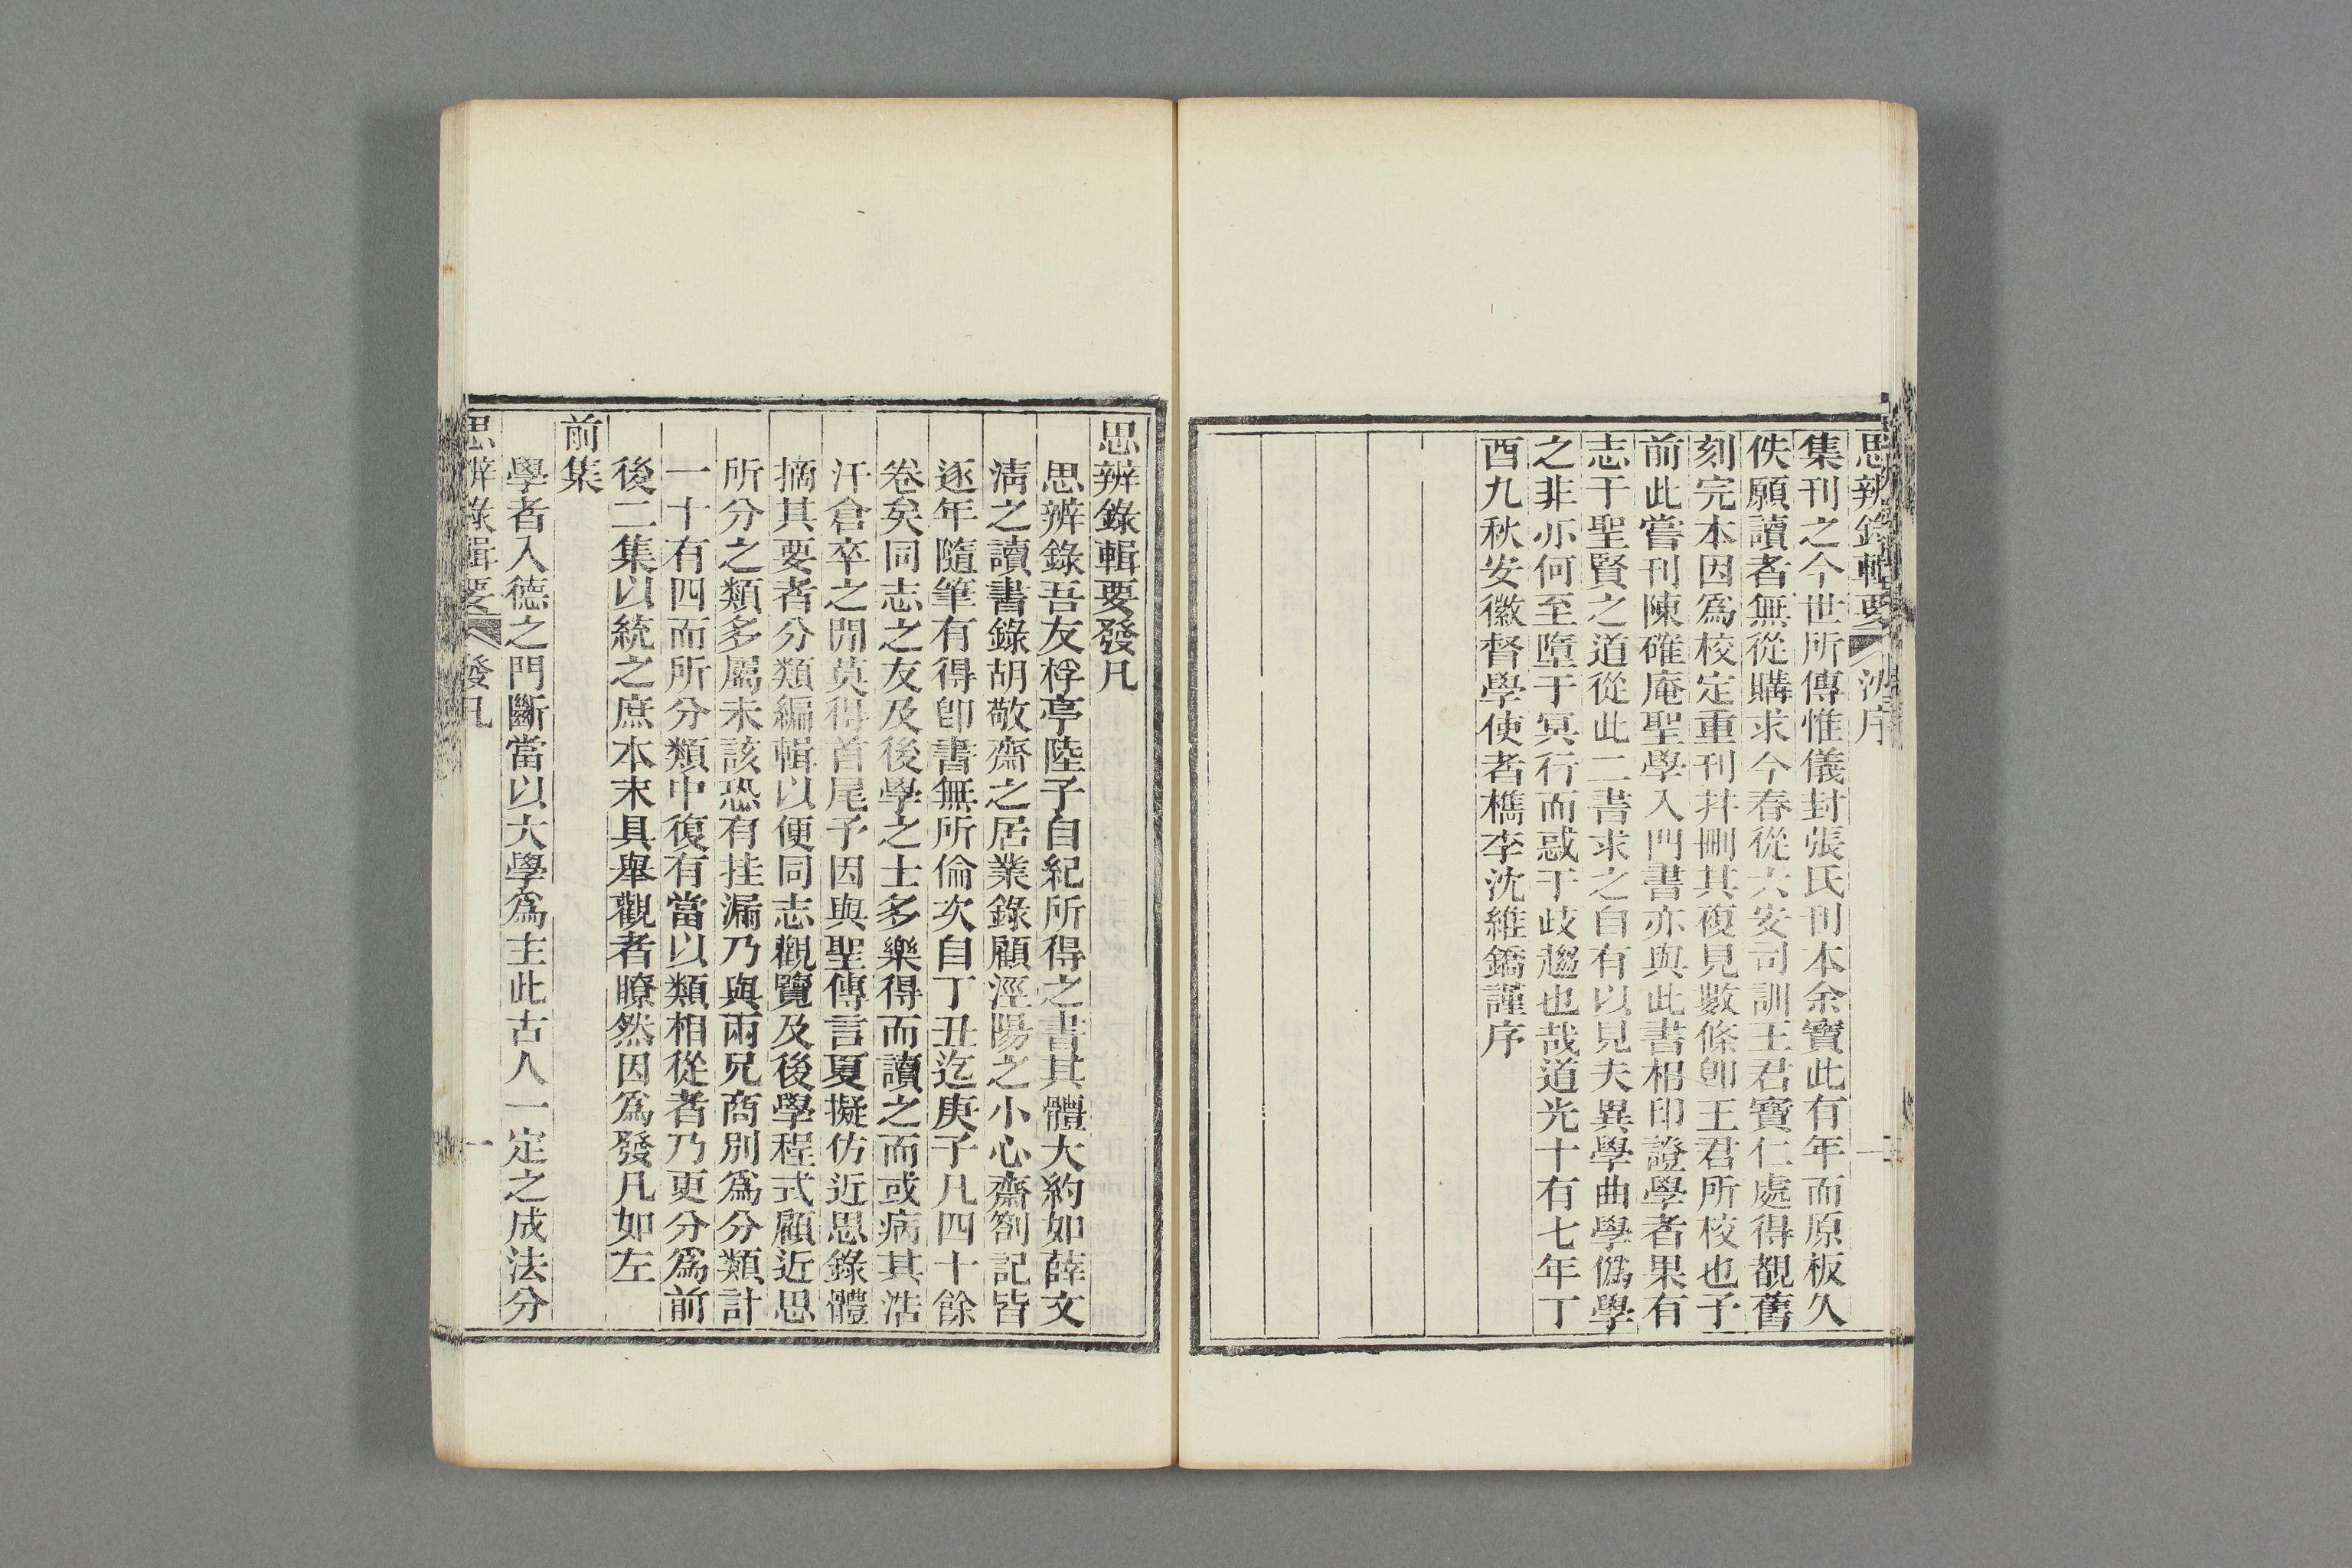 思辨錄輯要 沈序 二
集刊之今世所傳惟儀封張氏刊本余寶此有年而原板久
佚願讀者無從購求今春從六安司訓王君寶仁處得覩舊
刻完本因爲校定重刊幷刪其複見數條卽王君所校也予
前此嘗刊陳確庵聖學入門書亦與此書相印證學者果有
志于聖賢之道從此二書求之自有以見夫異學曲學僞學
之非亦何至墮于冥行而惑于歧趨也哉道光十有七年丁
酉九秋安徽督學使者檇李沈維鐈謹序
思辨錄輯要發凡
思辨錄吾友桴亭陸子自紀所得之書其體大約如薛文
淸之讀書錄胡敬齋之居業錄顧涇陽之小心齋劄記皆
逐年隨筆有得卽書無所倫次自丁丑迄庚子凡四十餘
卷矣同志之友及後學之士多樂得而讀之而或病其浩
汗倉卒之閒莫得首尾予因與聖傳言夏擬仿近思錄體
摘其要者分類編輯以便同志觀覽及後學程式顧近思
所分之類多屬未該恐有挂漏乃與兩兄商別爲分類計
一十有四而所分類中復有當以類相從者乃更分爲前
後二集以統之庶本末具舉觀者瞭然因爲發凡如左
前集
學者入德之門斷當以大學爲主此古人一定之成法分
思辨錄輯要 發凡 一